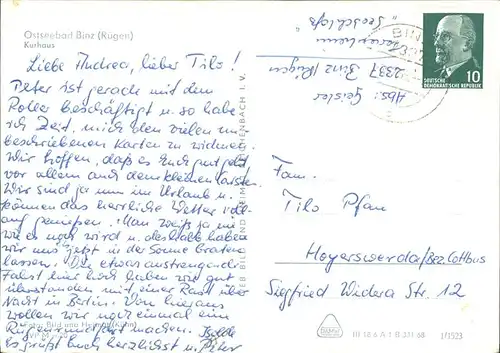 Ostseebad Binz (Rügen)
Kurhaus
Liebe Andrea, lieber Tilo!
Peter ist gerade mit dem
Roller beschäftigt u. so habe
ich Zeit, mich den vielen un-
beschriebenen Karten zu widmen.
Wir hoffen, daß es Euch gut geht
vor allem auch dem kleinen Karsten.
Wir sind ja nun im Urlaub u.
können das herrliche Wetter voll-
auf genießen. Man weiß ja nie
wie es noch wird u. deshalb haben
wir uns jetzt in der Sonne braten
lassen. Die etwas anstrengende
Fahrt hier hoch haben wir gut
überstanden mit einer Rast über
Nacht in Berlin. Von hier aus
wollen wir noch einmal eine
Rügenrundfahrt machen.
es grüßt Euch herzlichst u. Peter
Foto: Bild und Heimat
VEB BILD UND HEIMAT REICHENBACH I. V.
Abs: Geisler
2337 Binz/Rügen
Ferienheim
"Seeschloß"
BINZ
DEUTSCHE
DEMOKRATISCHE REPUBLIK
10
Fam.
Tilo Pfau
Hoyerswerda/Bez. Cottbus
Siegfried Widera Str. 12
III 18 6 A 1 B 331 68
1/1523